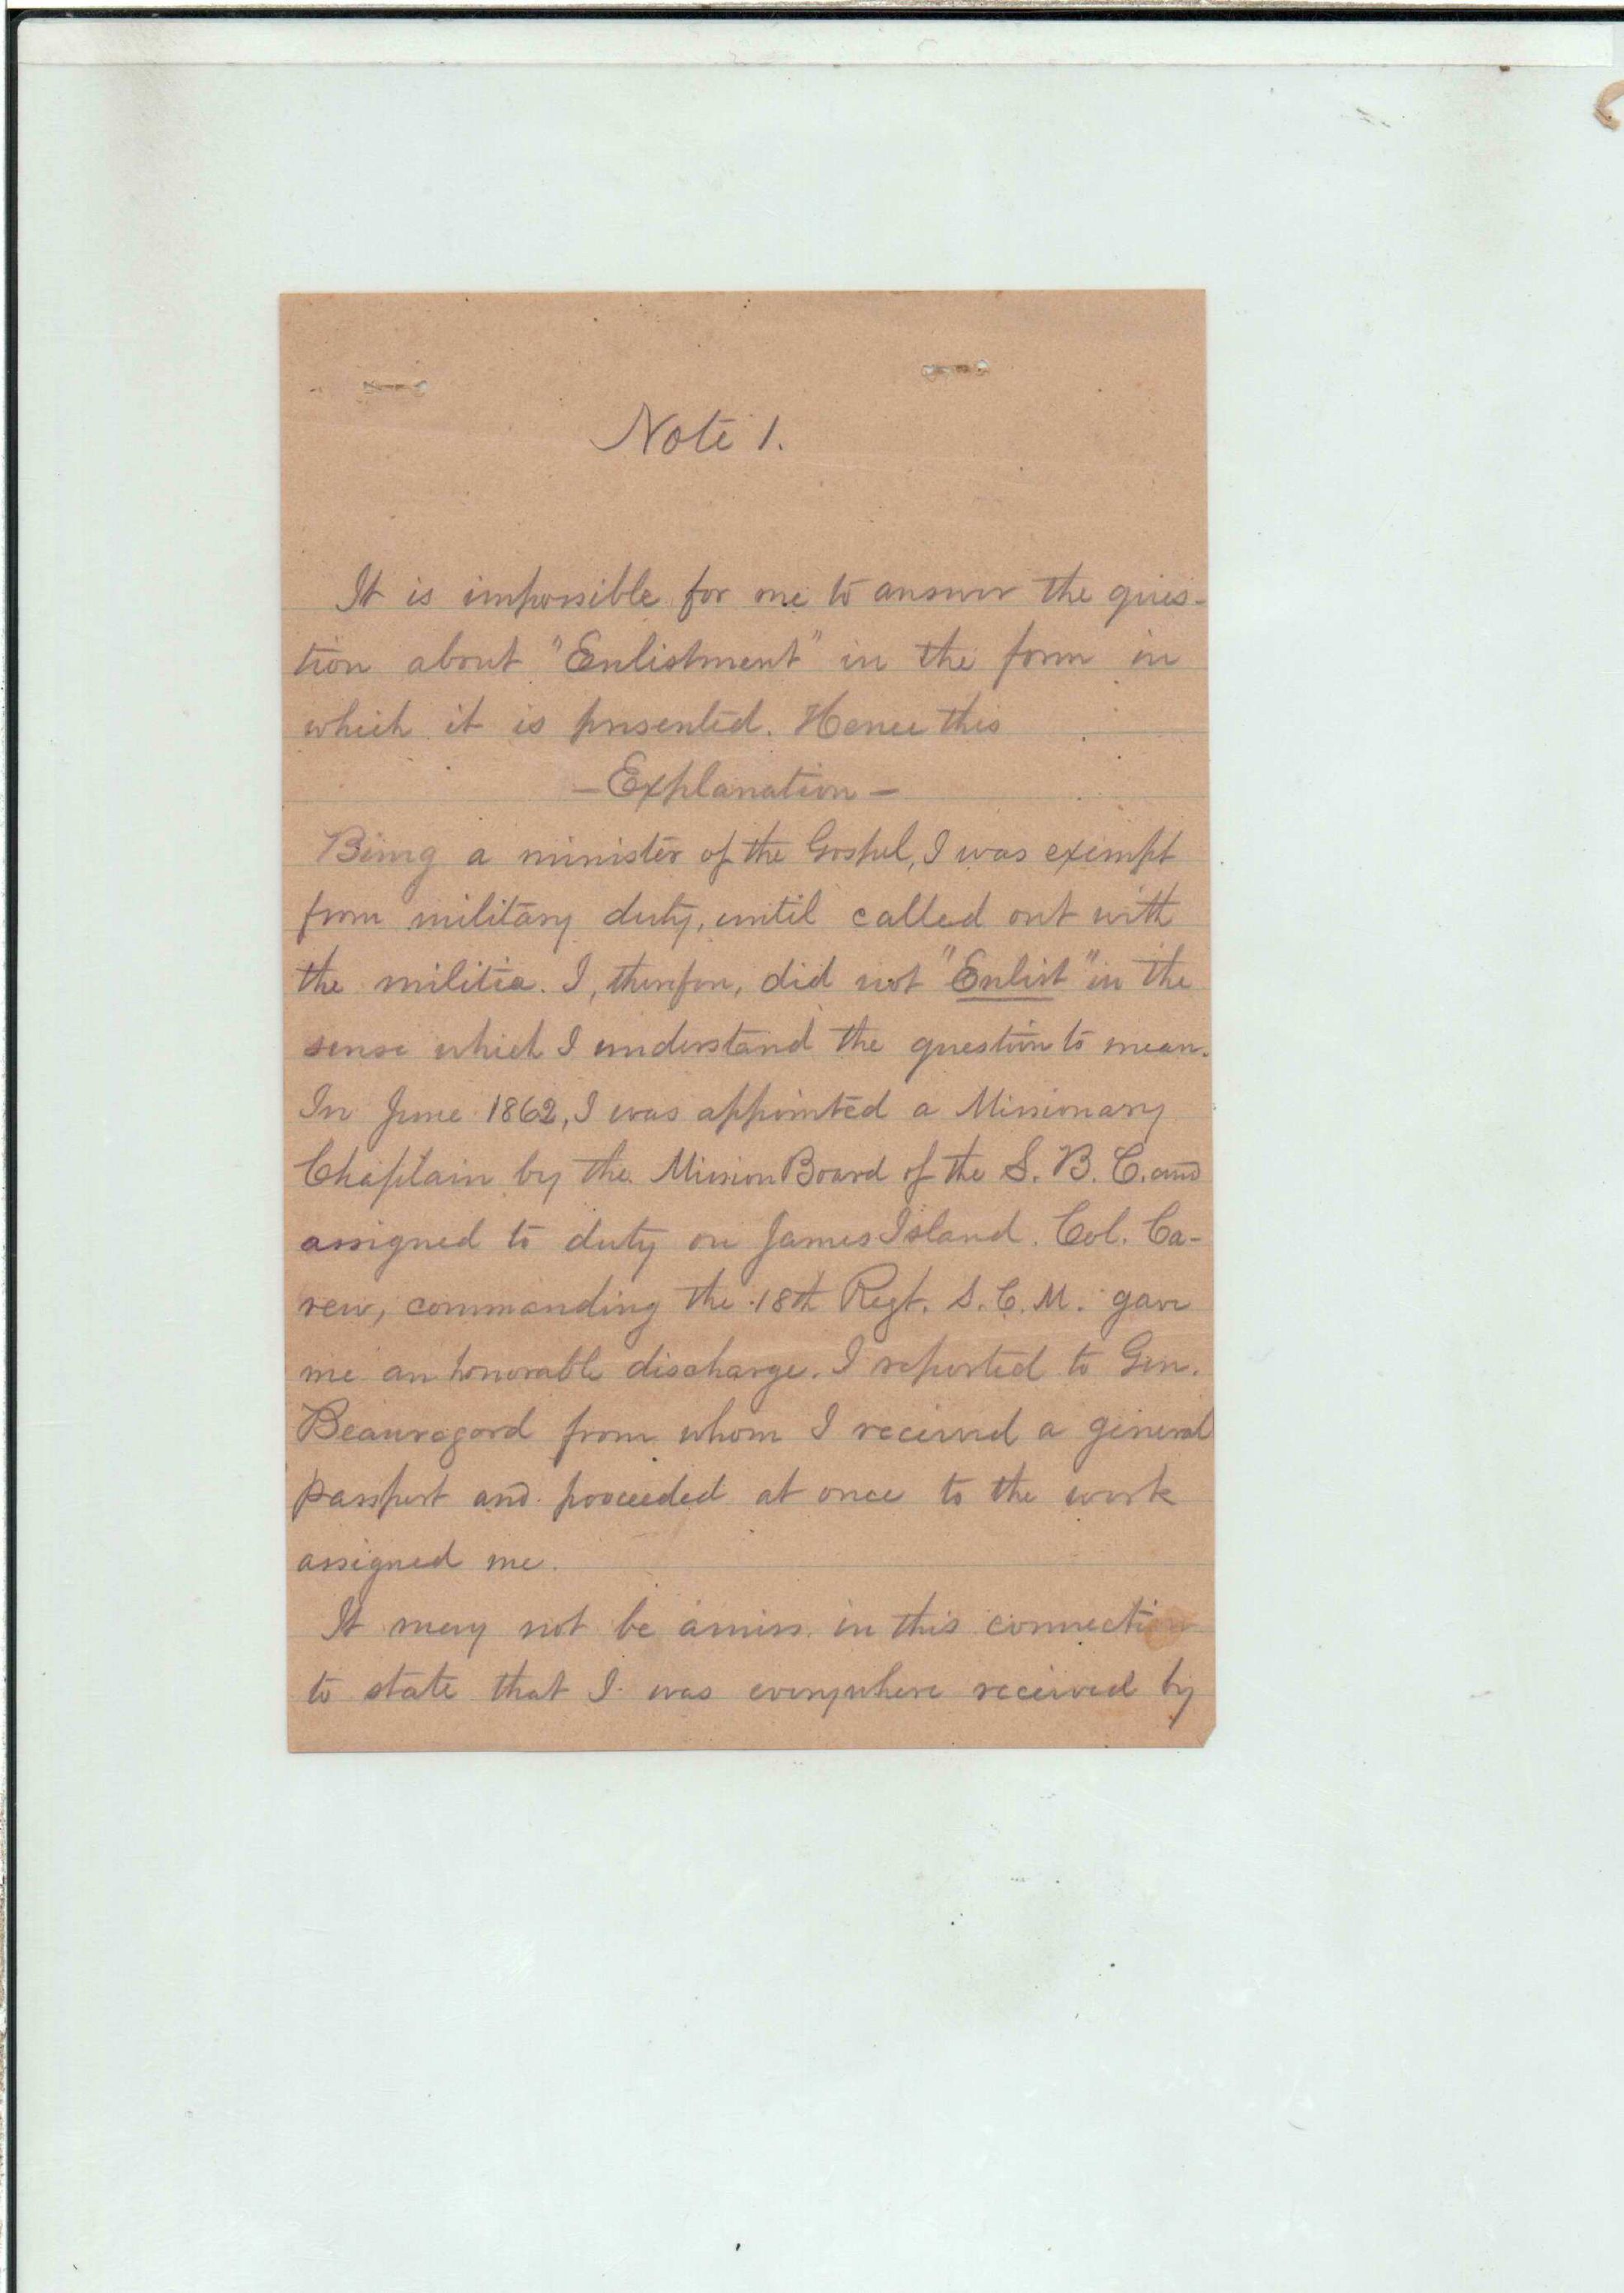 Note 1.
It is impossible for me to answer the ques-
tion about "Enlistment" in the form in
which it is presented. Hence this
- Explanation -
Being a minister of the Gospel, I was exempt
from military duty, until called out with
the militia. I, therefore, did not "Enlist" in the
sense which I understand the question to mean.
In June 1862, I was appointed a Missionary
Chaplain by the Mission Board of the S. B. C. and
assigned to duty on James Island. Col. Ca-
rew, commanding the 18th Regt. S. C. M. gave
me an honorable discharge. I reported to Gen.
Beauregard from whom I received a general
passport and proceeded at once to the work
assigned me.
It may not be amiss in this connection
to state that I was everywhere received by